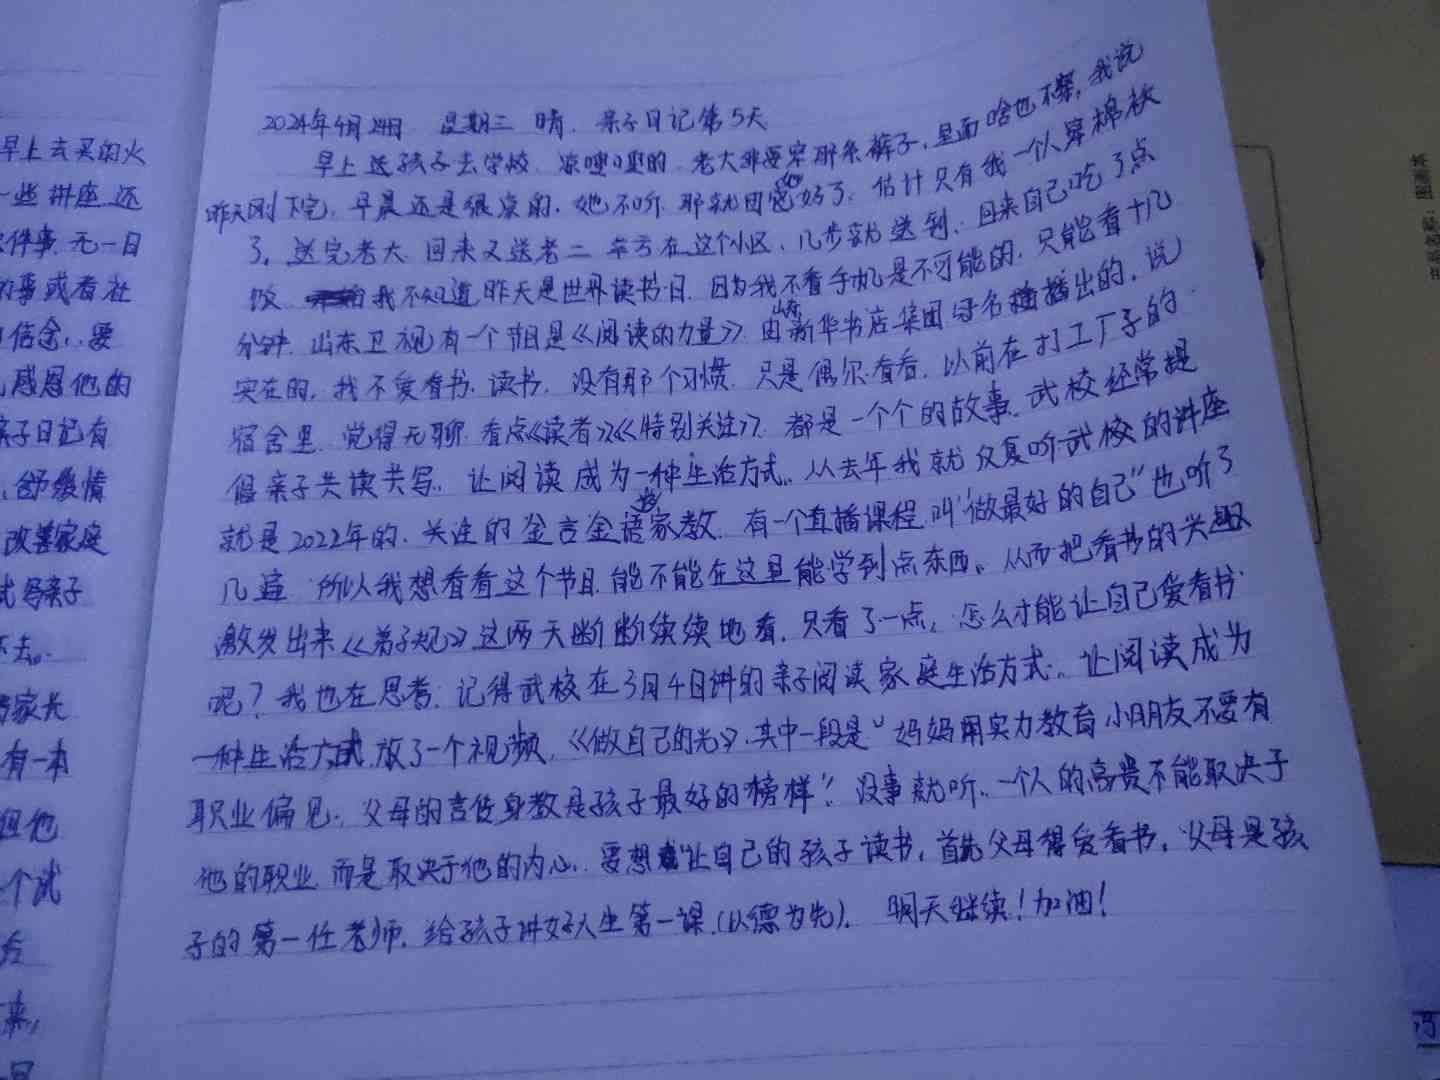 早上去买的火
一些讲座还
件事.无一日
事或者社
信念,.要
感恩他的
亲子日记有
舒缓情
改善家庭
试写亲子
去。
家长
有一本
但他
个试
后
来,
2024年4月24日 星期三 晴. 亲子日记第5天
早上送孩子去学校.凉嗖嗖的.老大非要穿那条裤子,里面啥也不穿,我说
昨天刚下完,早晨还是很凉的,她不听.那就由您好了,估计只有我一个人穿棉袄
了,送完老大.回来又送老二 在这个小区,几步就送到.回来自己吃了点
饭 我不知道昨天是世界读书日.因为我不看手机是不可能的,只能看十几
分钟.山东卫视有一个节目是《阅读的力量》.由山东新华书店集团冠名播播出的,说
实在的,我不爱看书.读书.没有那个习惯.只是偶尔看看.以前在打工厂子的
宿舍里.觉得无聊.看点《读者》《特别关注》.都是一个个的故事.武校经常提
倡亲子共读共写.让阅读成为一种生活方式.从去年我就反复听武校的讲座
就是2022年的.关注的金言金语家教.有一个直播课程.叫“做最好的自己”也听了
几遍.所以我想看看这个节目.能不能在这里能学到点东西。从而把看书的兴趣
激发出来《弟子规》这两天断断续续地看,只看了一点,怎么才能让自己爱看书
呢?我也在思考.记得武校在3月4日讲的亲子阅读家庭生活方式.让阅读成为
一种生活方式.放了一个视频,《做自己的光》.其中一段是“妈妈用实力教育小朋友不要有
职业偏见.父母的言传身教是孩子最好的榜样”.没事就听.一个人的高贵不能取决于
他的职业.而是取决于他的内心.要想让自己的孩子读书,首先父母得爱看书,父母是孩
子的第一任老师.给孩子讲好人生第一课.(以德为先).明天继续!加油!